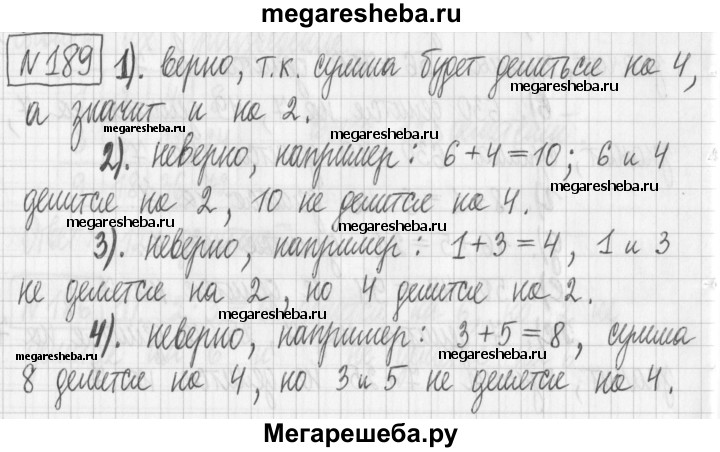 megaresheba.ru
№189 1). верно, т.к. сумма будет делиться на 4,
megaresheba.ru
а значит и на 2.
megaresheba.ru megaresheba.ru
2). неверно, например: 6+4=10; 6 и 4
делится на 2, 10 не делится на 4.
megaresheba.ru megaresheba.ru
3). неверно, например: 1+3=4, 1 и 3
не делятся на 2, но 4 делится на 2.
4). неверно, например: 3+5=8, сумма
megaresheba.ru megaresheba.ru
8 делится на 4, но 3 и 5 не делятся на 4.
Мегарешеба.ру